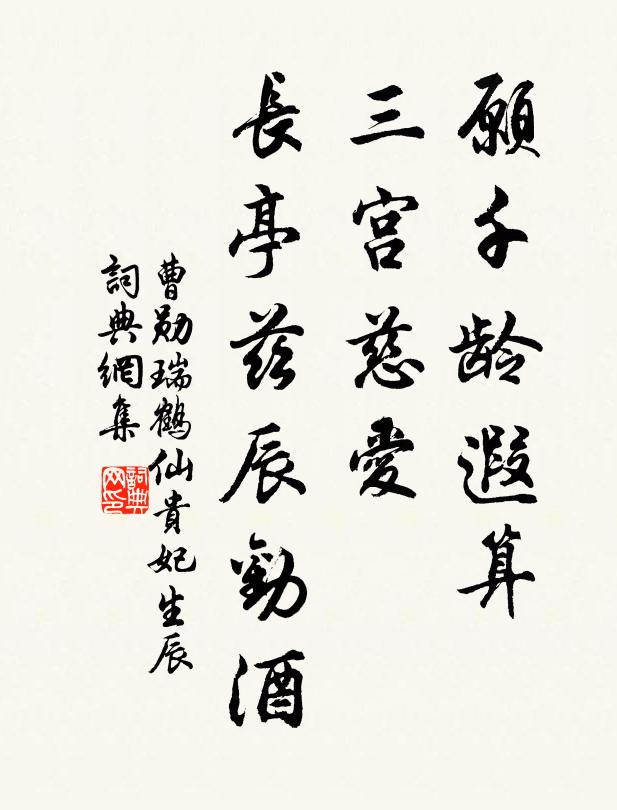 願千齡遐算
三宮慈愛
長亭茲辰勸酒
曹勛瑞鶴仙貴妃生辰
詞典網集
詞典网印